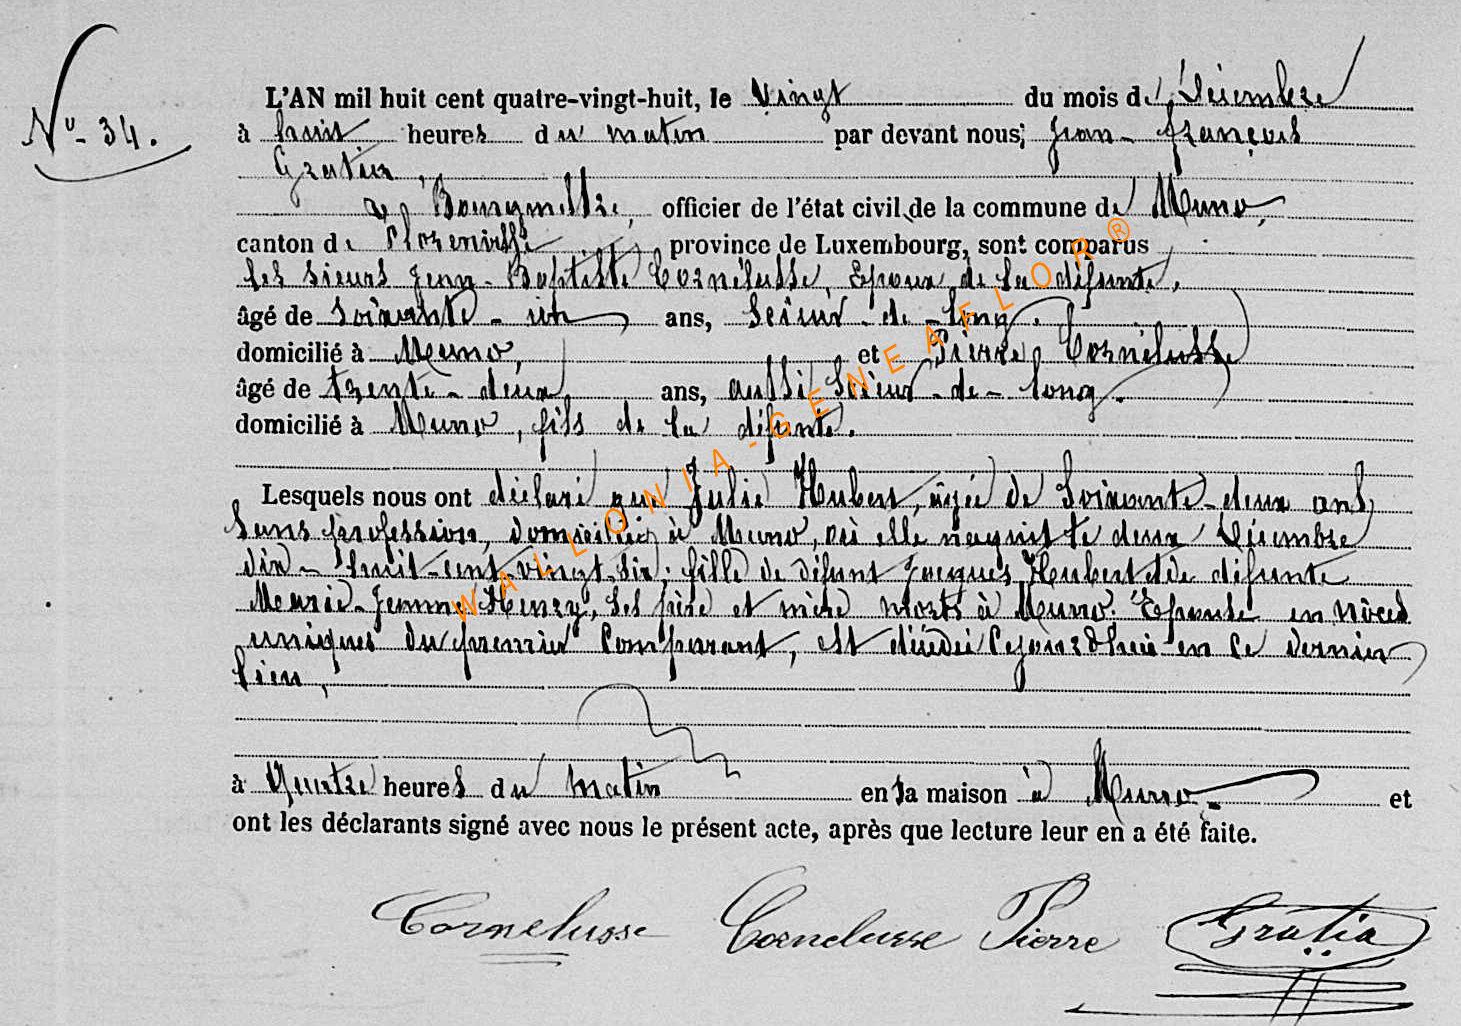 N° 34.
L'AN mil huit cent quatre-vingt-huit, le Vingt du mois de Décembre
à huit heures du matin par devant nous, Jean-François
Gratia,
Bourgmestre, officier de l'état civil de la commune de Muno,
canton de Florenville province de Luxembourg, sont comparus
les sieurs Jean-Baptiste Cornélusse, Epoux de la défunte,
âgé de soixante-un ans, Scieur-de-long.
domicilié à Muno, et Pierre Cornélusse
âgé de trente-deux ans, aussi Scieur-de-long.
domicilié à Muno, fils de la défunte.
Lesquels nous ont déclaré que Julie Hubert, âgée de Soixante-deux ans
Sans profession, domiciliée à Muno, où elle naquit le deux Décembre
dix-huit-cent-vingt-six, fille de défunt Jacques Hubert et de défunte
Marie-Jeanne Henry, ses père et mère morts à Muno. Epouse en nôces
uniques du premier Comparant, est décédée Cejourd'hui en ce dernier
lieu,
à Quatre heures du matin en sa maison à Muno et
ont les déclarants signé avec nous le présent acte, après que lecture leur en a été faite.
Cornelusse Cornelusse Pierre Gratia
WALLONIA-GENEAFLOR®